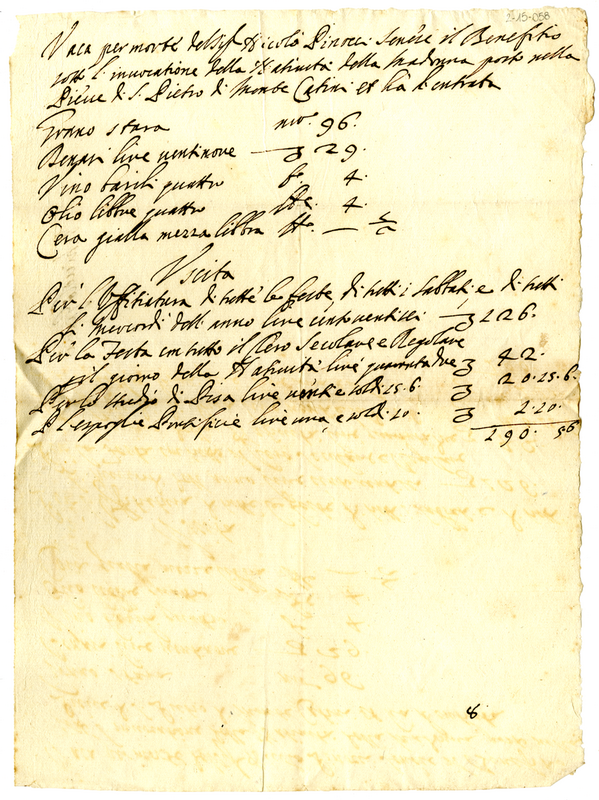 2-15-058
Vaca per morte del Sig.r Niccolò Pinocci Senese il Benefitio
sotto l'invocatione della Natività della Madonna posto nella
Pieve di S. Pietro di Monte Catini et ha d'entrata
Grano stara 96.
Denari lire ventinove 29.
Vino barili quattro b. 4.
Olio libbre quattro lbe. 4.
Cera gialla mezza libbra
Uscita
Per l'Offitiatura di tutte le feste, di tutti i sabbati e di tutti
li mercordì dell'anno lire cento ventisei 126.
Per la Festa con tutto il Clero Secolare e Regolare
il giorno della Natività lire quaranta due 42.
Per lo studio di Pisa lire venti e soldi 15.6 20.15.6.
P. l'espoglie Pontificie lire una e soldi 10. 2.10.
190. 56
8